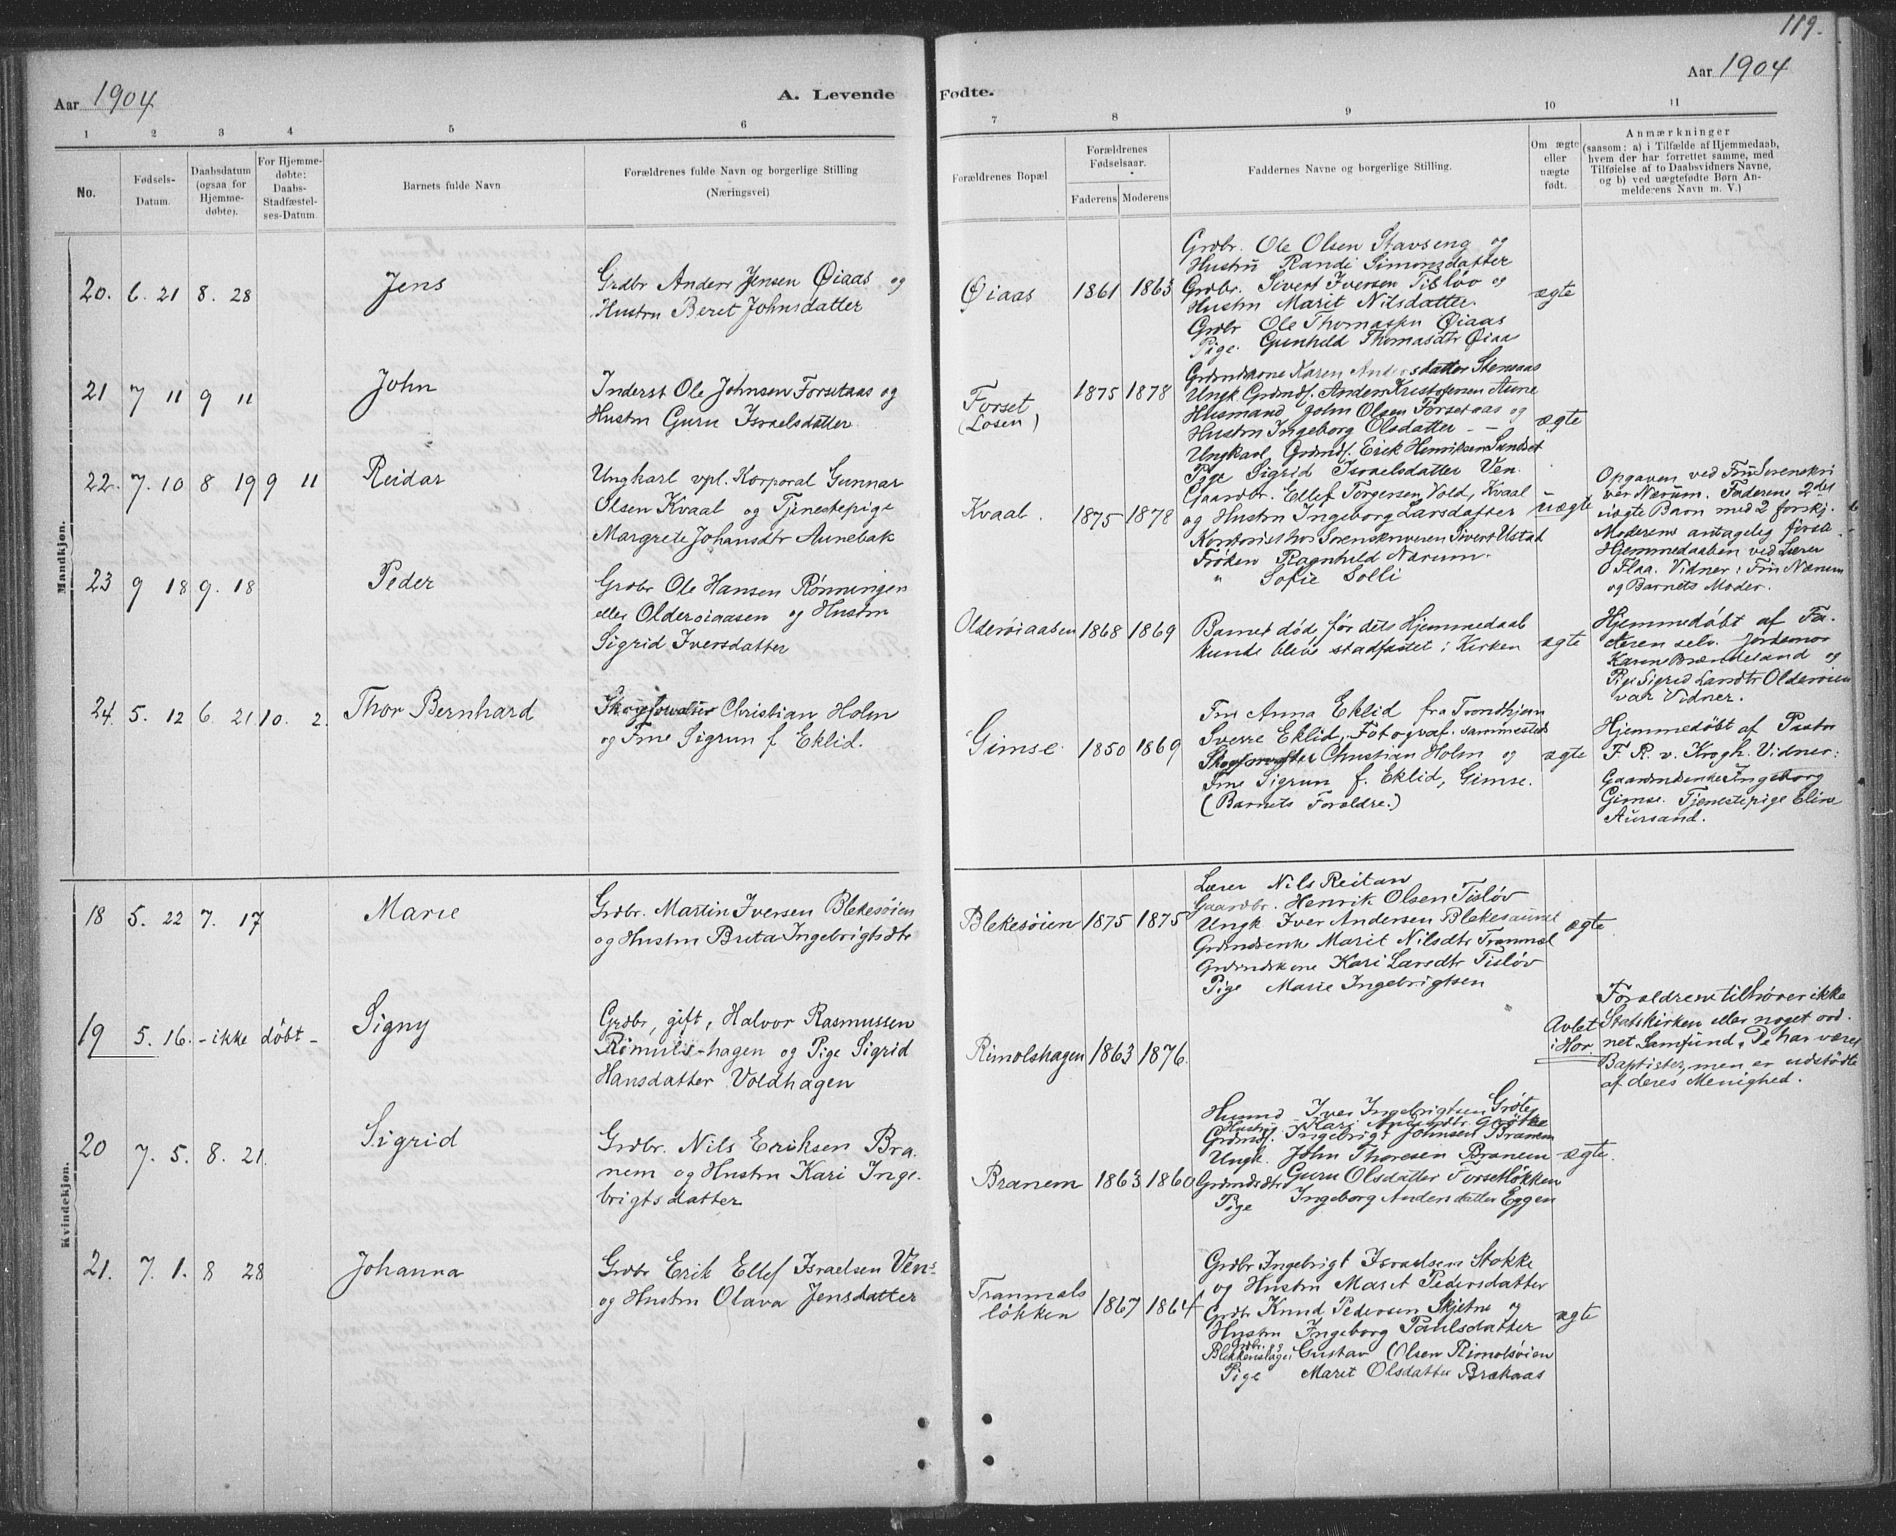 119.
Aar 1904
A. Levende Fødte.
Aar 1904
1 2 3 4 5 6 7 8 9 10 11
No.
Fødsels-Datum.
Daabsdatum (ogsaa for Hjemmedøbte).
For Hjemmedøbte: Daabs-Stadfæstelses-Datum.
Barnets fulde Navn
Forældrenes fulde Navn og borgerlige Stilling
(Næringsvei)
Forældrenes Bopæl
Forældrenes Fødselsaar.
Faderens Moderens
Faddernes Navne og borgerlige Stilling.
Om ægte eller uægte født.
Anmærkninger
(saasom: a) i Tilfælde af Hjemmedaab,
hvem der har forrettet samme, med
Tilføielse af to Daabsvidners Navne,
og b) ved uægtefødte Børn An-
melderens Navn m. V.)
Mandkjøn.
20. 6. 21 8. 28
Jens
Grdbr Anders Jensen Øiaas og
Hustru Beret Johnsdatter
Øiaas 1861 1863
Grdbr. Ole Olsen Stavseng og
Hustru Randi Simonsdatter
Grdbr. Sivert Iversen Tisløv og
Hustru Marit Nilsdatter.
Grdbr Ole Thomaspn Øiaas
Pige. Gunhild Thomasdtr Øiaa
ægte
21 7 11 9 11
John
Inderst Ole Johnsen Forsetaas og
Hustru Guru Israelsdatter
Forset
(Løsen)
1875 1878
Grdmdkone Karen Andersdatter Stensaas
Ungk Grdmdf. Anders Kristofersen Aune
Husmand John Olsen Forsetaas og
Hustru Ingeborg Olsdatter - -
Ungkarl Grdmdf. Erik Henriksen Sundset
Pige Sigrid Israelsdatter Ven.
ægte
22. 7. 10 8 19 9 11
Reidar
Ungkarl vpl. Korporal Gunnar
Olsen Kvaal og Tjenestepige
Margrete Johansdtr Aunebak
Kvaal. 1875 1878
Gaardbr. Ellef Torgersen Vold, Kvaal
og Hustru Ingeborg Larsdatter
Kontorist hos Sorenskriveren Sivert Ustad
Frøken Ragnhild Nærum.
" Sofie Solli
uægte
Opgaven ved Fru Sorenskri
ver Nærum. Faderens 2det
uægte Barn med 2 forskj.
Moderens antagelig første
Hjemmedaaben ved Lærer
O Flaa. Vidner: Fru Nærum
og Barnets Moder.
23 9 18 9. 18
Peder
Grdbr Ole Hansen Rønningen
eller Olderøiaasen og Hustru
Sigrid Iversdatter
Olderøiaasen 1868 1869
Barnet død, før dets Hjemmedaab
kunde blive stadfæstet i Kirken
ægte
Hjemmedøbt af Fa-
deren selv. Jordemor
Karen Brændesland og
Pige Sigrid Larsdtr Olderøien
var Vidner.
24. 5. 12 6. 21 10. 2.
Thor Bernhard
Skogforvalter Christian Holm
og Frue Sigrun f. Eklid.
Gimse. 1850 1869
Fru Anna Eklid fra Trondhjem
Sverre Eklid, Fotograf. sammesteds
Skogforvalter Christian Holm og
Frue Sigrun f. Eklid, Gimse.
(Barnets Forældre.)
ægte
Hjemmedøbt af Pastor
F. R. v. Krogh. Vidner:
Gaardmdenke Ingeborg
Gimse. Tjenestepige Eline
Aursand.
Kvindekjøn.
18 5. 22 7. 17
Marie
Grdbr. Martin Iversen Blekesøien
og Hustru Brita Ingebrigtsdtr
Blekesøien 1875 1875
Lærer Nils Reitan
Gaardbr. Henrik Olsen Tisløv
Ungk Iver Andersen Blekesaunet
Grdmdsenke Marit Nilsdtr Tranmæl
Grdmdskone Kari Larsdtr Tisløv
Pige Marie Ingebrigtsen
ægte
19 5. 16. - ikke døbt -
Signy
Grdbr, gift, Halvor Rasmussen
Rømuls-hagen og Pige Sigrid
Hansdatter Voldhagen
Rimolshagen 1863 1876.
Avlet
i Hor.
Forældrene tilhører ikke
Statskirken eller noget ord-
net Samfund. De har været
Baptister, men er udstødte
af deres Menighed.
20 7. 5. 8. 21.
Sigrid
Grdbr. Nils Eriksen Bra-
nem og Hustru Kari Inge-
brigtsdatter
Branem 1863 1860
Husmd Iver Ingebrigtsen Grøte
Hustru Kari Andersdtr Grøtte
Grdmdf. Ingebrigt Johnsen Branem
Ungk. John Thoresen Branem
Grdmdsdtr Guru Olsdatter Forsetløkken
Pige Ingeborg Andersdatter Eggen
ægte.
21. 7. 1. 8 28
Johanna
Grdbr Erik Ellef Israelsen Ven
og Hustru Olava Jensdatter
Tranmæls
løkken
1867 1864
Grdbr Ingebrigt Israelsen Stokke
og Hustru Marit Pedersdatter
Grdbr Knud Pedersen Skjetne og
Hustru Ingeborg Paulsdatter
Grdbr. &
Blikkenslager Gustav Olsen Rimolsøien
Pige Maret Olsdatter Brækaas
ægte